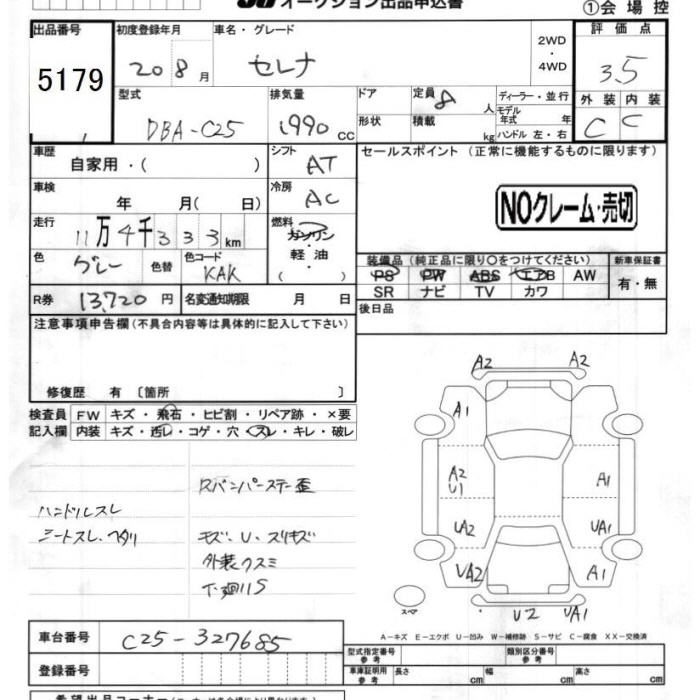 オークション出品申込書
①会場控
出品番号 5179
初度登録年月 20 8月
車名・グレード セレナ
2WD・4WD
評価点 3.5
外装 C 内装 C
型式 DBA-C25
排気量 1990 cc
ドア 形状
定員 8 人
積載 kg
ディーラー・並行
モデル年式 年
ハンドル 左・右
車歴 自家用・( )
シフト AT
セールスポイント (正常に機能するものに限ります)
NOクレーム・売切
車検 年 月( 日)
冷房 AC
走行 11万4千333km
燃料 ガソリン・軽油
色 グレー 色替 色コード KAK
装備品(純正品に限り○をつけてください)
PS PW ABS エアB AW
SR ナビ TV カワ
新車保証書 有・無
R券 13,720円 名変通知期限 月 日
後日品
注意事項申告欄(不具合内容等は具体的に記入して下さい)
修復歴 有〔箇所 〕
検査員記入欄
FW キズ・飛石・ヒビ割・リペア跡・×要
内装 キズ・汚レ・コゲ・穴・スレ・キレ・破レ
Rバンパーステー歪
ハンドルスレ
シートスレ、ヘタリ
キズ・U・スリキズ
外装クスミ
下廻りS
A2 A2
A1
A2 U1 A1
UA2 UA1
UA2 A1
U2 UA1
スペア
A-キズ E-エクボ U-凹み W-補修跡 S-サビ C-腐食 XX-交換済
車台番号 C25-327685
登録番号
型式指定番号 参考
類別区分番号 参考
車庫証明用 参考 長さ cm 幅 cm 高さ cm
希望出品コーナー